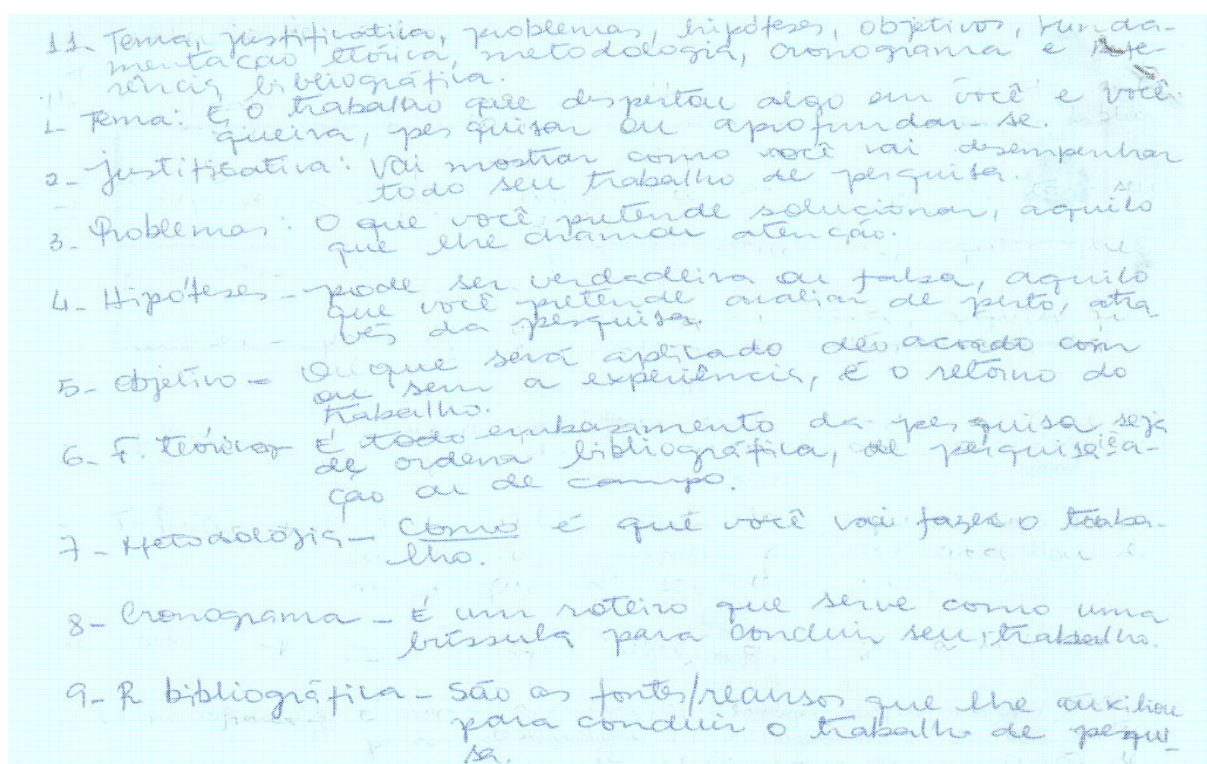 11- Tema, justificativa, problemas, hipóteses, objetivos, funda-
mentação teórica, metodologia, cronograma e refe-
rência bibliográfica.
1- Tema: É o trabalho que despertou algo em você e você
queira, pesquisar ou aprofundar-se.
2- Justificativa: Vai mostrar como você vai desempenhar
todo seu trabalho de pesquisa.
3- Problemas: O que você pretende solucionar, aquilo
que lhe chamou atenção.
4- Hipóteses - pode ser verdadeira ou falsa, aquilo
que você pretende avaliar de perto, atra
vés da pesquisa.
5- Objetivo - O que será aplicado de acordo com
ou sem a experiência, é o retorno do
trabalho.
6- F. teórica - É todo embasamento da pesquisa seja
de ordem bibliográfica, de pesquisa-
ção ou de campo.
7- Metodologia - Como é que você vai fazer o traba-
lho.
8- Cronograma - É um roteiro que serve como uma
bússula para conduzir seu trabalho.
9- R bibliográfica - São as fontes/recursos que lhe auxiliou
para conduzir o trabalho de pesqui-
sa.